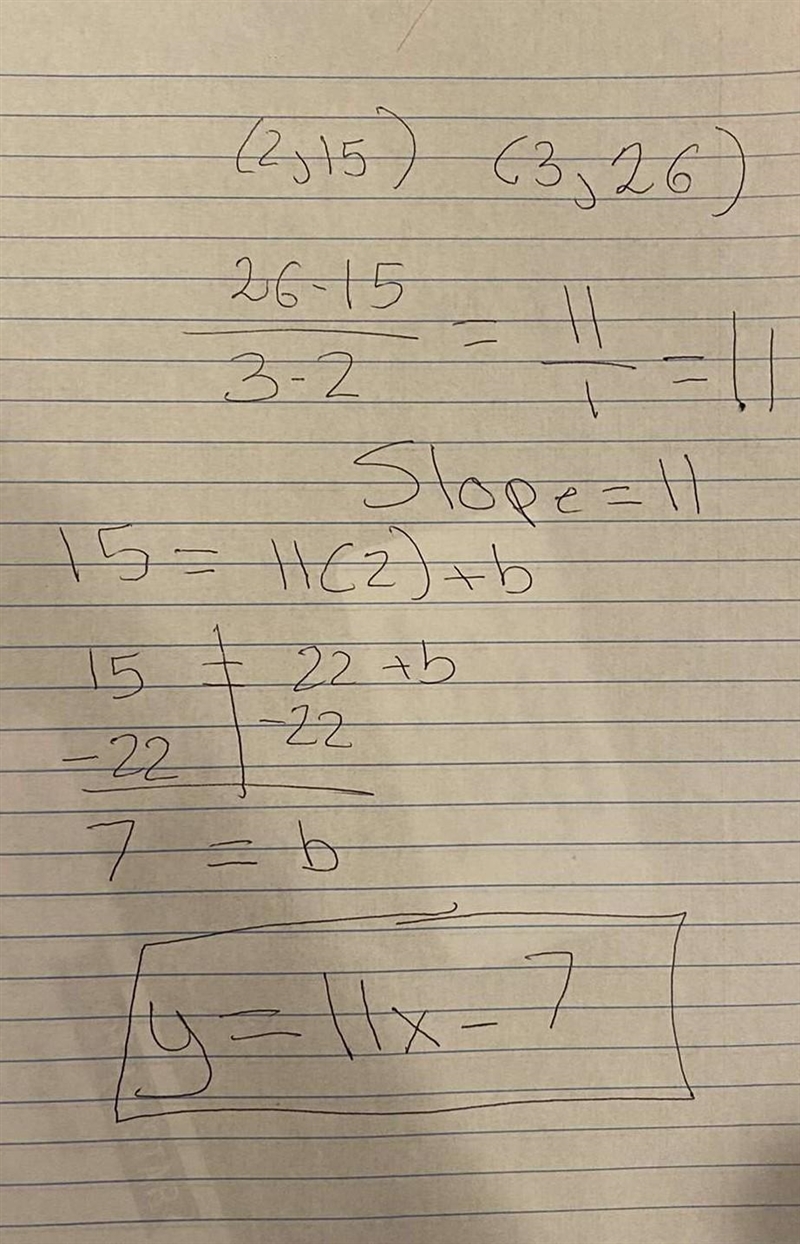 (2,15) (3,26)
26-15
3-2
= 11
1
= 11
Slope=11
15= 11(2)+b
15 = 22+b
-22 -22
7 = b
y=11x-7